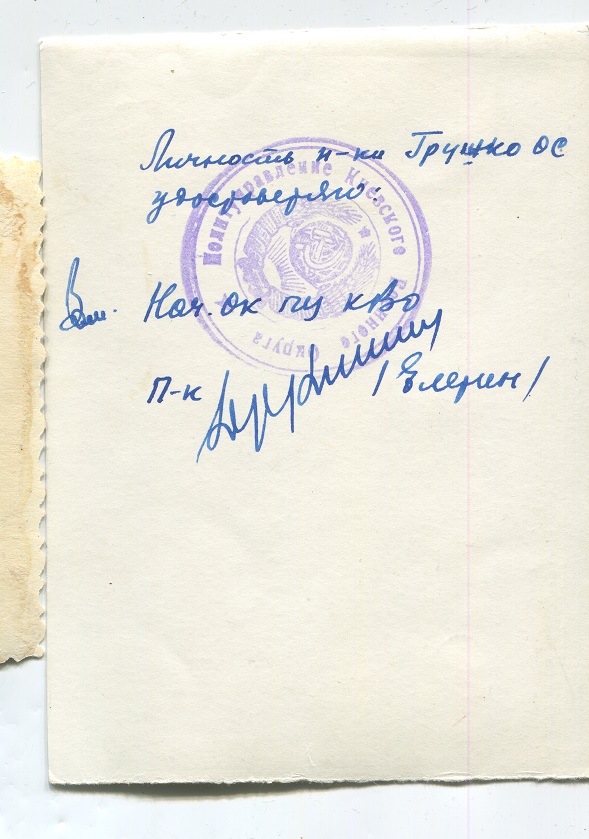 Личность п-ка Грушко ОС
удостоверяю:
Вм. Нач. ок пу кВо
п-к /Елерин/
Политуправление Киевского военного округа